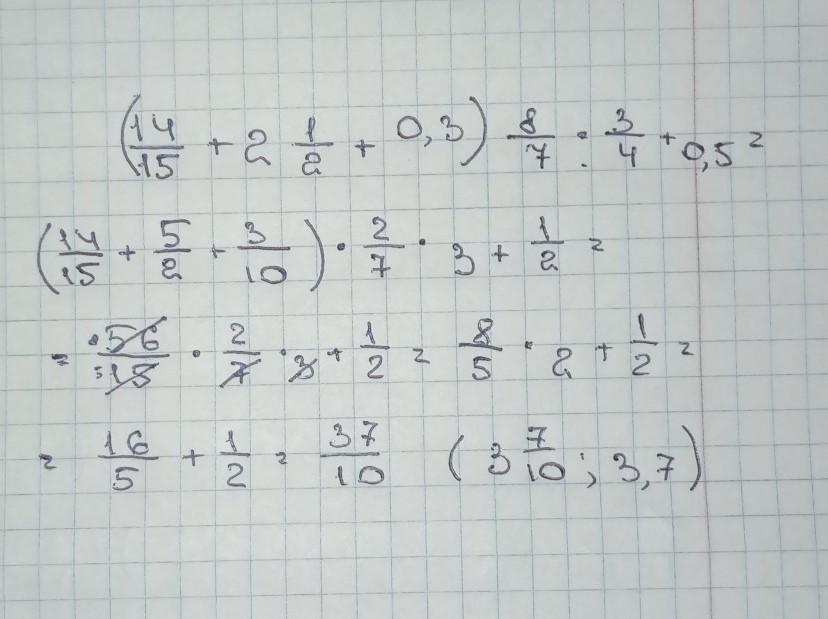 (14/15 + 2 1/2 + 0,3) 8/7 : 3/4 + 0,5 =
(14/15 + 5/2 + 3/10) · 2/7 · 3 + 1/2 =
= 56/15 · 2/7 · 3 + 1/2 = 8/5 · 2 + 1/2 =
= 16/5 + 1/2 = 37/10 (3 7/10; 3,7)